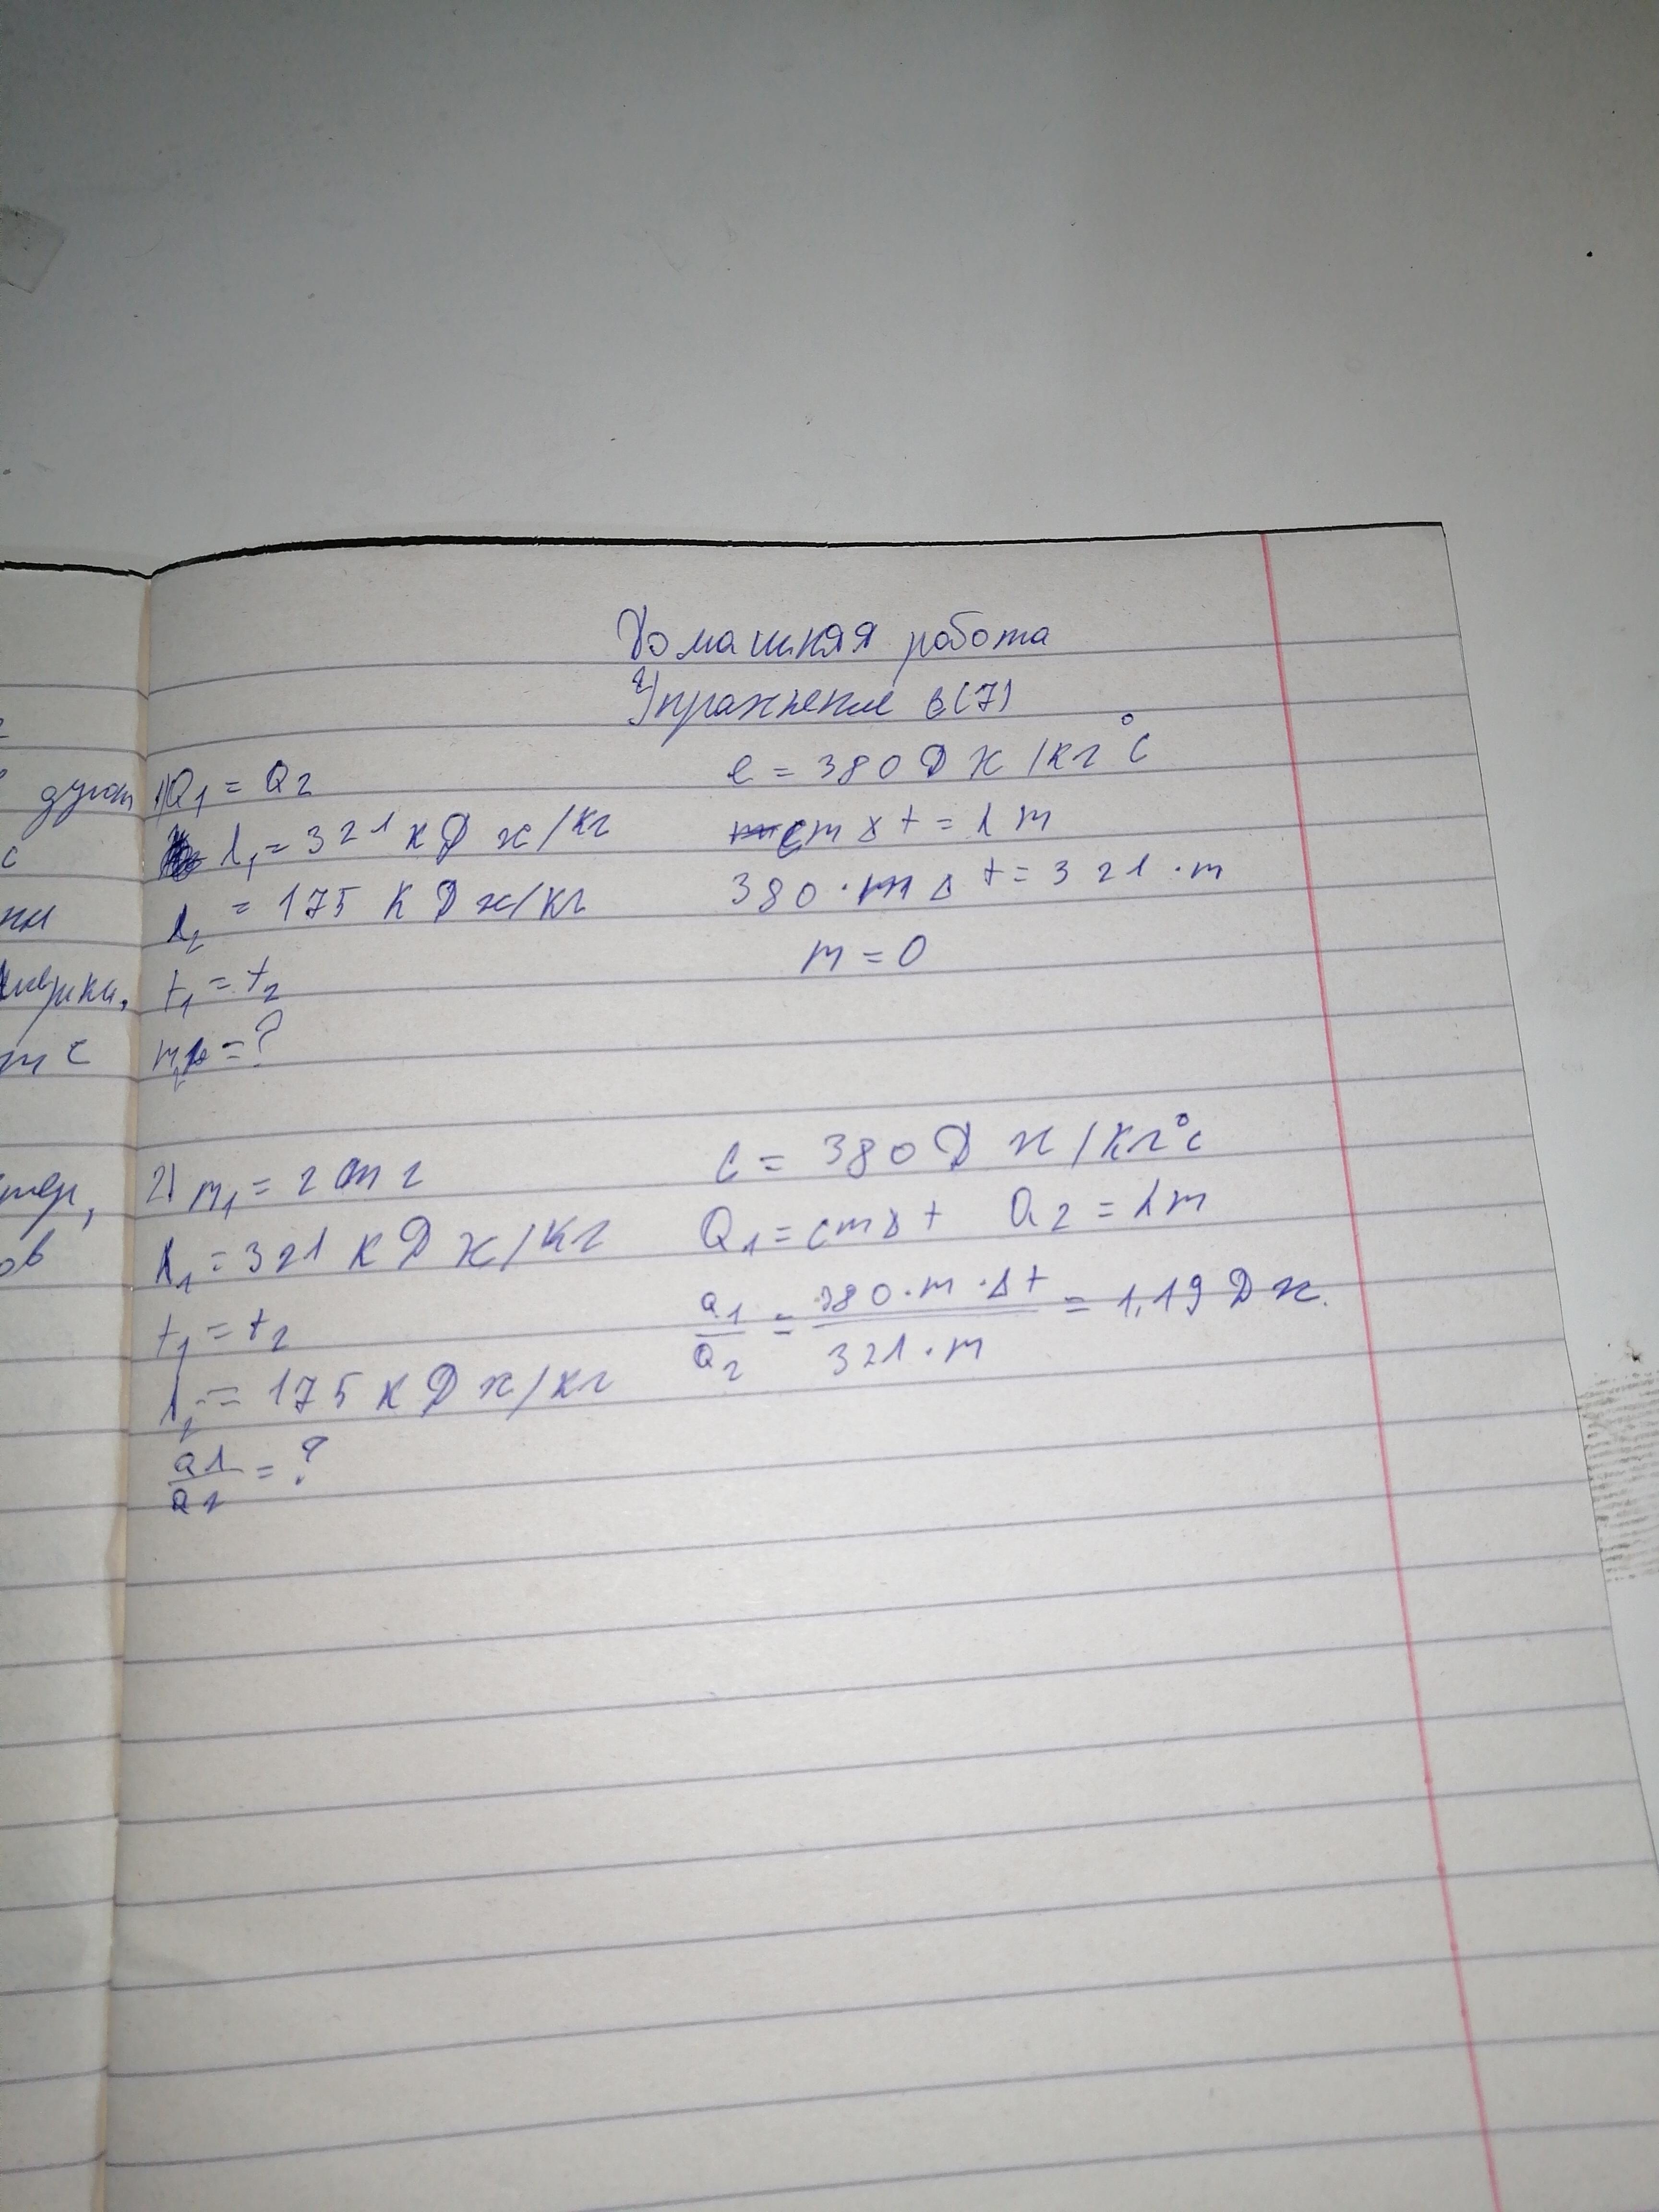 Домашняя работа
Упражнение 6(7)
1) Q1 = Q2
λ1 = 321 кДж/кг
λ2 = 175 кДж/кг
t1 = t2
c = 380 Дж/кг°C
cmΔt = λm
380·mΔt = 321·m
m = 0
2) m1 = 2 m2
λ1 = 321 кДж/кг
t1 = t2
λ2 = 175 кДж/кг
Q1/Q2 = ?
c = 380 Дж/кг°c
Q1 = cmΔt Q2 = λm
Q1/Q2 = 380·m·Δt/321·m = 1,19 Дж.
дуют
с
ки
т с
ов